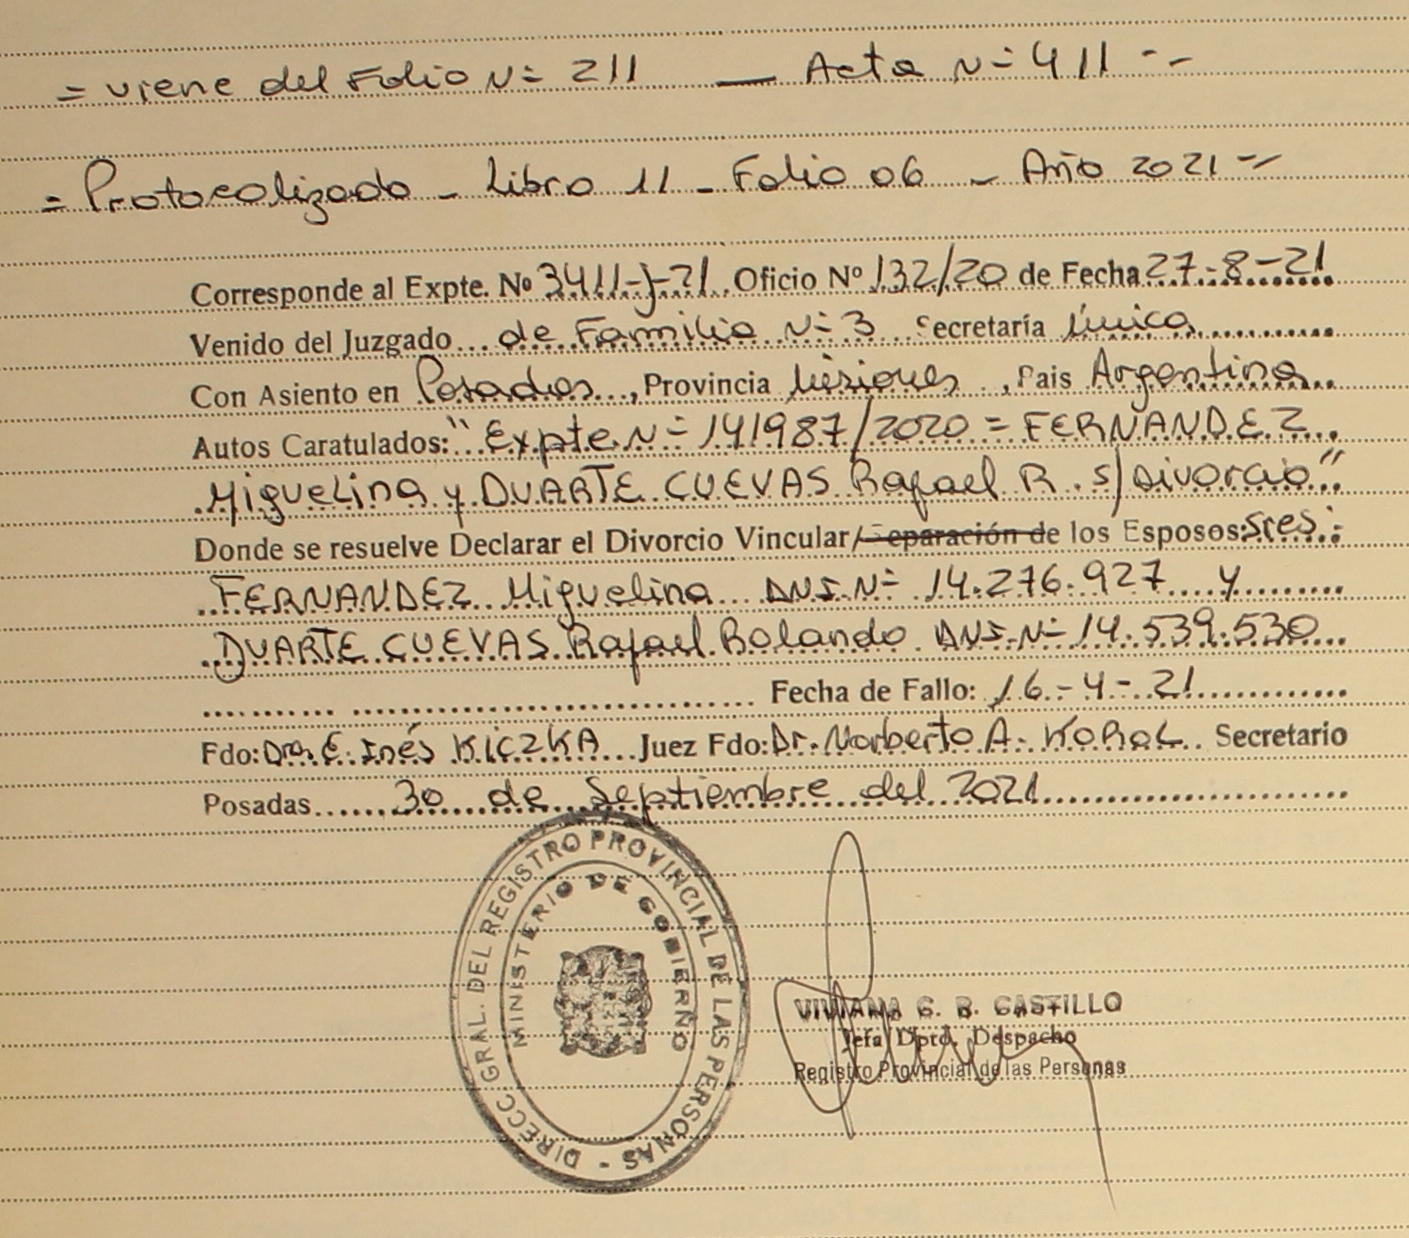 = viene del Folio N= 211 — Acta N= 411 --
= Protocolizado - Libro 11 - Folio 06 - Año 2021 =
Corresponde al Expte. Nº 3411-J-21. Oficio Nº 132/20 de Fecha 27-8-21
Venido del Juzgado de Familia N= 3 Secretaría Única
Con Asiento en Posadas, Provincia Misiones, Pais Argentina
Autos Caratulados: "Expte. N= 141987/2020 = FERNANDEZ
Miguelina y DUARTE CUEVAS Rafael R. s/Divorcio"
Donde se resuelve Declarar el Divorcio Vincular/Separación de los Esposos: Sres:
FERNANDEZ Miguelina DNI. N= 14.276.927 y
DUARTE CUEVAS Rafael Rolando DNI. N= 14.539.530
Fecha de Fallo: 16-4-21
Fdo: Dra. E. Inés KICZKA Juez Fdo: Dr. Norberto A. KOROL Secretario
Posadas 30 de Septiembre del 2021
DIRECC. GRAL. DEL REGISTRO PROVINCIAL DE LAS PERSONAS -
MINISTERIO DE GOBIERNO
VIVIANA G. B. CASTILLO
Jefa Dpto. Despacho
Registro Provincial de las Personas